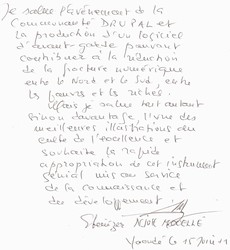 Je salue l'événement de la
Communauté DRUPAL et
la production d'un logiciel
d'avant-garde pouvant
contribuer à la réduction
de la fracture numérique
entre le Nord et le Sud, entre
les pauvres et les riches.
Mais je salue tout autant
sinon davantage l'une des
meilleures illustrations du
culte de l'excellence et
souhaite la rapide
appropriation de cet instrument
génial mis au service
de la connaissance et
du développement
Ebenezer
Yaoundé le 15 Juin 11